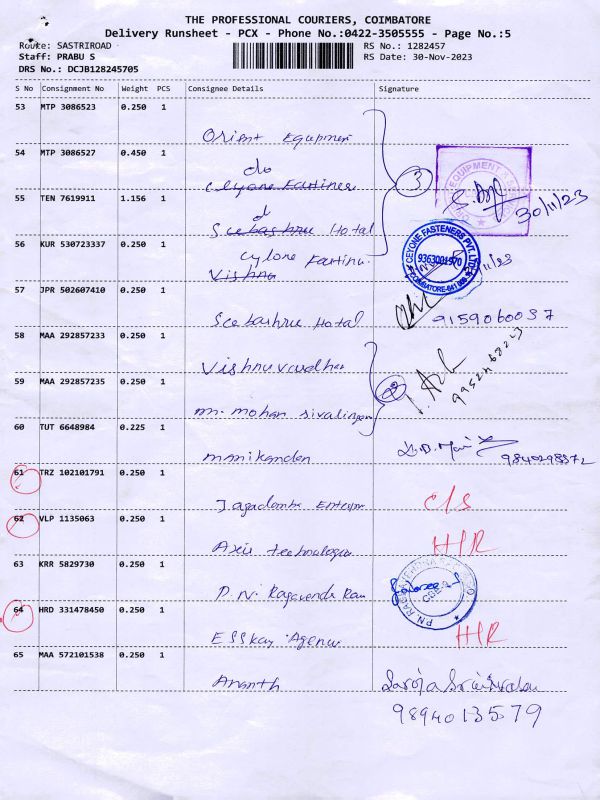 THE PROFESSIONAL COURIERS, COIMBATORE
Delivery Runsheet - PCX - Phone No.:0422-3505555 - Page No.:5
Route: SASTRIROAD RS No.: 1282457
Staff: PRABU S RS Date: 30-Nov-2023
DRS No.: DCJB128245705
S No Consignment No Weight PCS Consignee Details Signature
53 MTP 3086523 0.250 1
Orient Equipmen
54 MTP 3086527 0.450 1
do
Ceyone Fastiner
3
EQUIPMENT
30/11/23
55 TEN 7619911 1.156 1
d
Seebashru Hotal
56 KUR 530723337 0.250 1
Cylone Fastinu
Vishnu
CEYONE FASTENERS PVT. LTD.
9363001970
COIMBATORE-641
11/23
57 JPR 502607410 0.250 1
Seebashru Hotal
9159060037
58 MAA 292857233 0.250 1
Vishnuvardhan
59 MAA 292857235 0.250 1
Mr. mohan sivalingam
2
60 TUT 6648984 0.225 1
manikandan
61 TRZ 102101791 0.250 1
Jagadamba Enterpr
C/S
62 VLP 1135063 0.250 1
Axis technologies
H/R
63 KRR 5829730 0.250 1
P. N. Ragavendra Rau
64 HRD 331478450 0.250 1
ESSkay Agencie
H/R
65 MAA 572101538 0.250 1
Ananth
9894013579